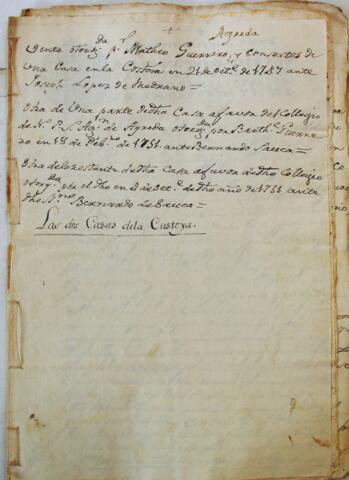 Agreda
Venta otorgda pr Matheo Guerrero, y consortes de
una Casa en la Costoia en 21 de Octe. de 1747 ante
Joseph Lopez de Medrano =
Otra de Una parte de dha Casa a favor del Collegio
de N. P. S. Agn. de Agreda otorgda por Barthe. Guerre
ro en 18 de Febo. de 1751 ante Bernardo Sauca =
Otra de lo restante de dha Casa a favor de dho Collegio
otorgda por el dho en 2 de Octe. de dho año de 1751 ante
dho Bernardo de Sauca =
Las dos Casas de la Custoya.